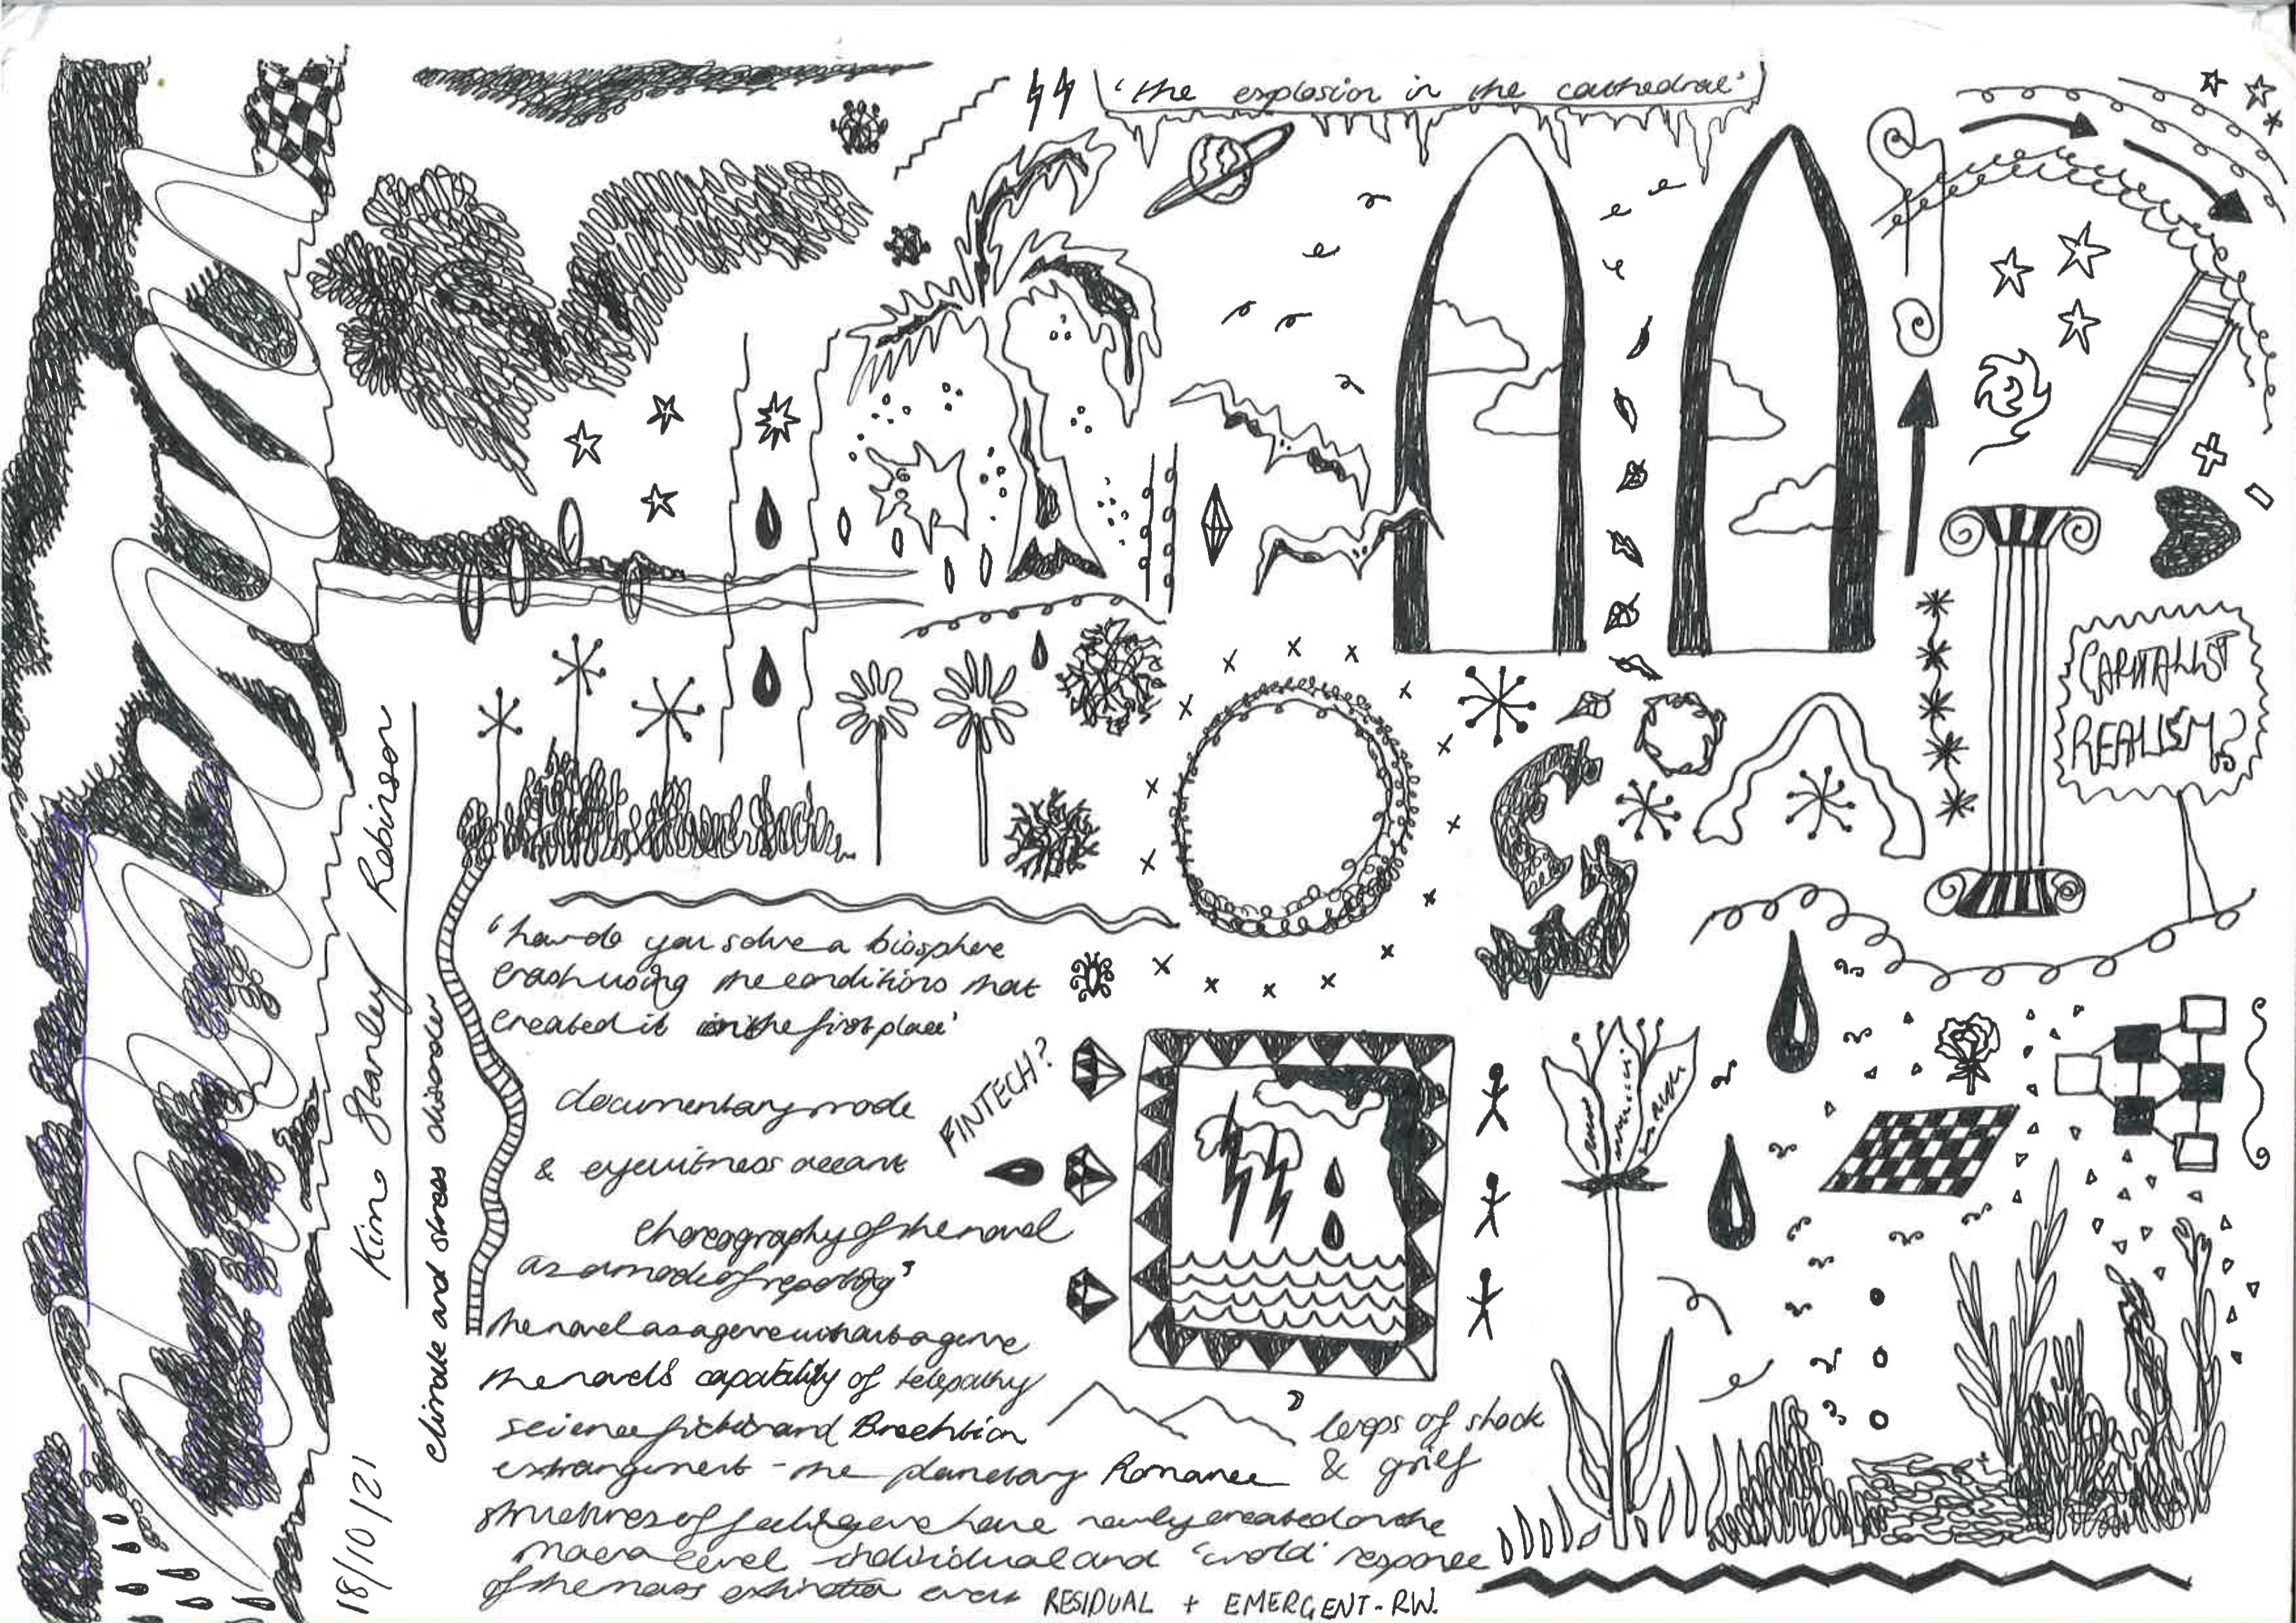 'the explosion in the cathedral'
CAPITALIST
REALISM?
Kim Stanley Robinson
climate and stress disorder
18/10/21
'how do you solve a biosphere
crash using the conditions that
created it in the first place'
documentary mode
& eyewitness account
FINTECH?
choreography of the novel
as a mode of reporting'
the novel as a genre without a genre
the novels capability of telepathy
science fiction and Brechtian
estrangement - the planetary Romance
loops of shock
& grief
structures of feeling we have newly created on the
macro level - individual and 'world' response
of the mass extinction event
RESIDUAL + EMERGENT - RW.